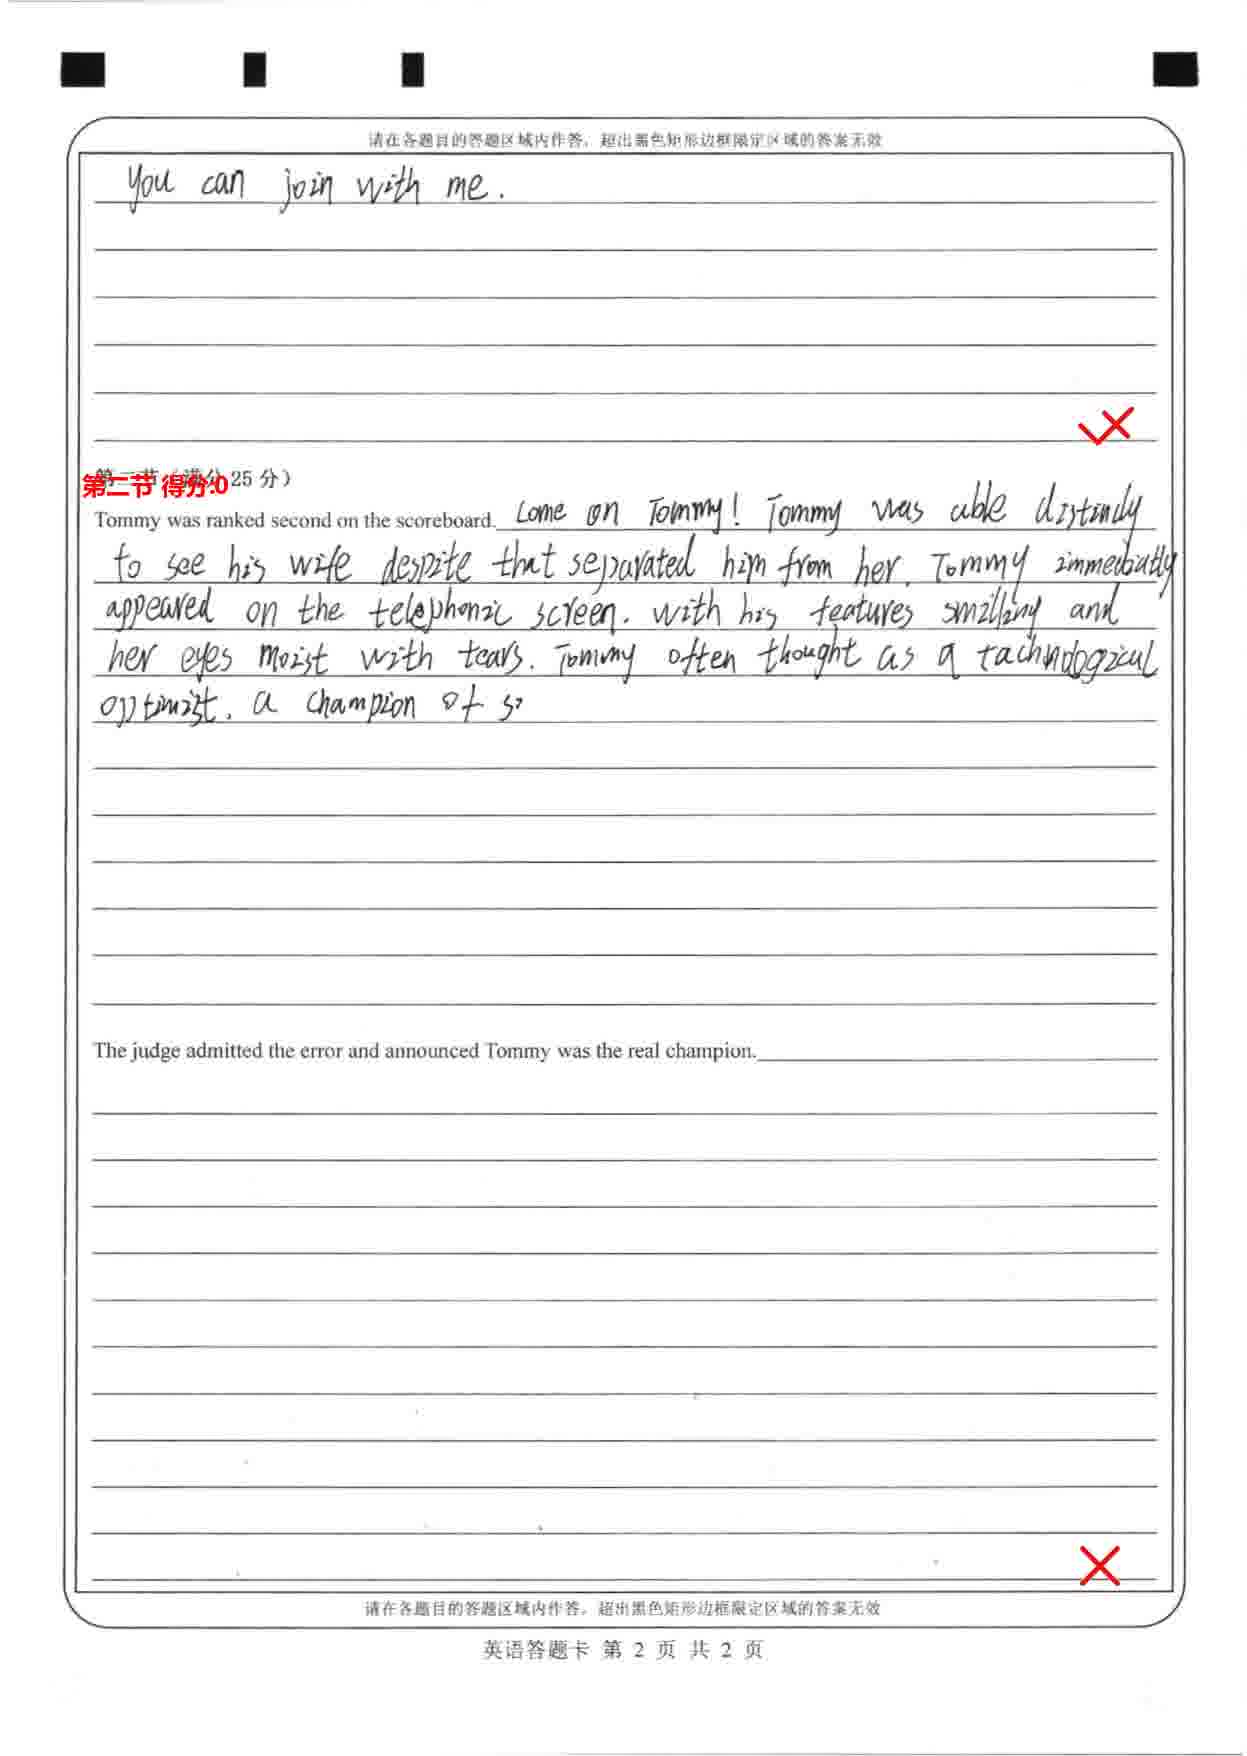 请在各题目的答题区域内作答，超出黑色矩形边框限定区域的答案无效
You can join with me.
第二节（满分25分）
第二节 得分:0
Tommy was ranked second on the scoreboard. Come on Tommy! Tommy was able distindly
to see his wife despite that separated him from her. Tommy immediatly
appeared on the telephonic screen. with his features smilling and
her eyes moist with tears. Tommy often thought as a tachnological
optimist. a champion of s
The judge admitted the error and announced Tommy was the real champion.
请在各题目的答题区域内作答，超出黑色矩形边框限定区域的答案无效
英语答题卡 第 2 页 共 2 页